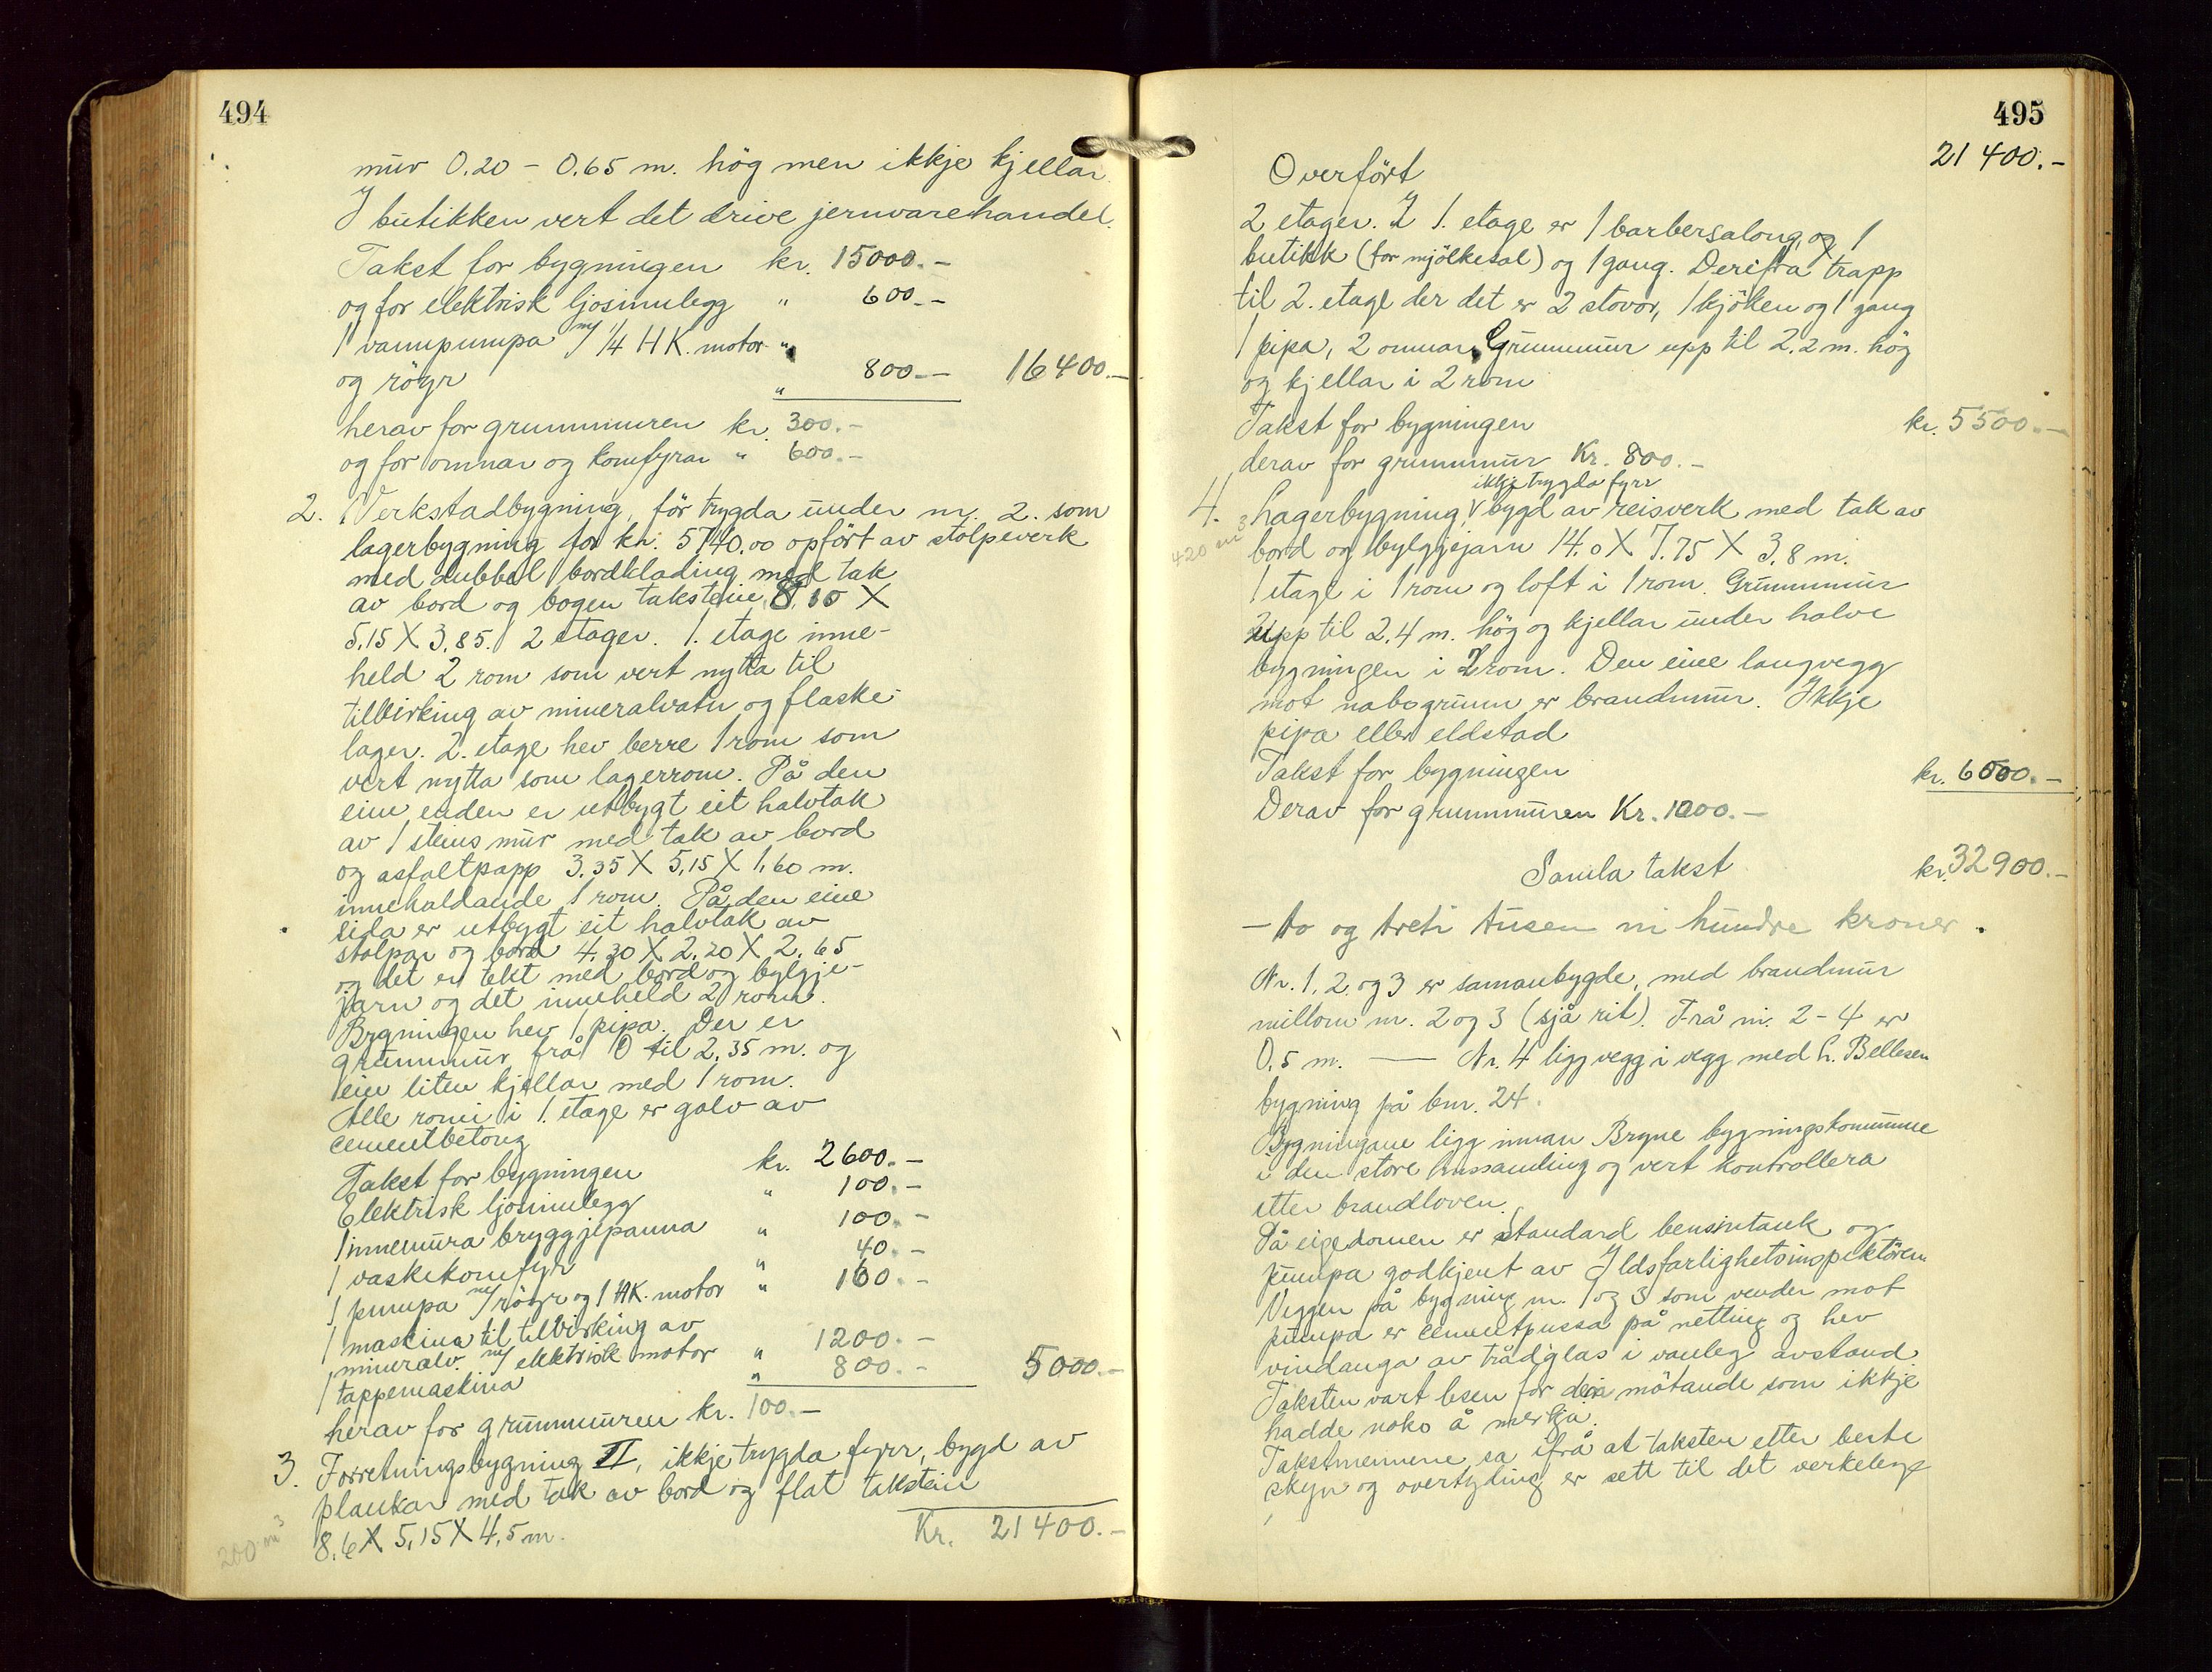 494
mur 0.20 - 0.65 m. hög men ikkje kjellar.
I butikken vert det drive jernvarehandel.
Takst for bygningen kr. 15000.-
og for elektrisk ljosinnlegg " 600.-
1 vannpumpa m/ 1/4 HK. motor "
og röyr " 800.- 16400.-
herav for grunnmuren kr. 300.-
og for omnar og komfyrar " 600.-
2. Verkstadbygning, för trygda under nr. 2. som
lagerbygning for kr. 5740.00 opfört av stolpeverk
med dubbel bordklading med tak
av bord og bogen takstein 8,10 X
5,15 X 3,85. 2 etager. 1. etage inne-
held 2 rom som vert nytta til
tilvirking av mineralvatn og flaske-
lager. 2. etage hev berre 1 rom som
vert nytta som lagerrom. På den
eine enden er utbygt eit halvtak
av 1 steins mur med tak av bord
og asfaltpapp 3.35 X 5,15 X 1,60 m.
innehaldande 1 rom. På den eine
sida er utbygt eit halvtak av
stolpar og bord 4,30 X 2,20 X 2,65
og det er tekt med bord og bylgje-
jarn og det inneheld 2 rom.
Bygningen hev 1 pipa. Der er
grunnmur frå 0 til 2,35 m. og
ein liten kjellar med 1 rom.
Alle romi i 1. etage er golv av
cementbetong
Takst for bygningen kr. 2600.-
Elektrisk ljosinnlegg " 100.-
1 innemura bryggjepanna " 100.-
1 vaskekomfyr " 40.-
1 pumpa m/ röyr og 1 HK. motor " 160.-
1 maskina til tilvirking av
mineralv. m/ elektrisk motor " 1200.-
1 tappemaskina " 800.- 5000.-
herav for grunnmuren kr. 100.-
3. Forretningsbygning II, ikkje trygda fyrr, bygd av
plankar med tak av bord og flat takstein
200 m3 8,6 X 5,15 X 4,5 m. Kr. 21400.-
495
Overfört 21400.-
2 etager. I 1. etage er 1 barbersalong, og 1
butikk (for mjölkesal) og 1 gang. Derifra trapp
til 2. etage der det er 2 stovor, 1 kjöken og 1 gang
1 pipa, 2 omnar. Grunnmur upp til 2.2 m. hög
og kjellar i 2 rom
Takst for bygningen kr. 5500.-
derav for grunnmur Kr. 800.-
ikkje trygda fyrr
4. Lagerbygning, V bygd av reisverk med tak av
420 m3 bord og bylgjejarn 14,0 X 7,75 X 3,8 m.
1 etage i 1 rom og loft i 1 rom. Grunnmur
upp til 2,4 m. hög og kjellar under halve
bygningen i 2 rom. Den eine langvegg
mot nabogrunn er brandmur. Ikkje
pipa eller eldstad
Takst for bygningen kr. 6000.-
Derav for grunnmuren Kr. 1000.-
Samla takst kr. 32900.-
- to og treti tusen ni hundre kroner.
Nr. 1, 2 og 3 er samanbygde, med brandmur
millom nr. 2 og 3 (sjå rit). Frå nr. 2-4 er
0,5 m. — Nr. 4 ligg vegg i vegg med L. Bellesen
bygning på bnr. 24.
Bygningane ligg innan Bryne bygningskommune
i den store hussamling og vert kontrollera
etter brandloven.
På eigedomen er standard bensintank og
pumpa godkjent av Ildsfarlighetsinspektören.
Veggen på bygning nr. 1 og 3 som vender mot
pumpa er cementpussa på netting og hev
vindauga av trådglas i vanleg avstand
Taksten vart lesen for dei mötande som ikkje
hadde noko å merkja.
Takstmennene sa ifrå at taksten etter beste
skyn og overtyding er sett til det verkelege